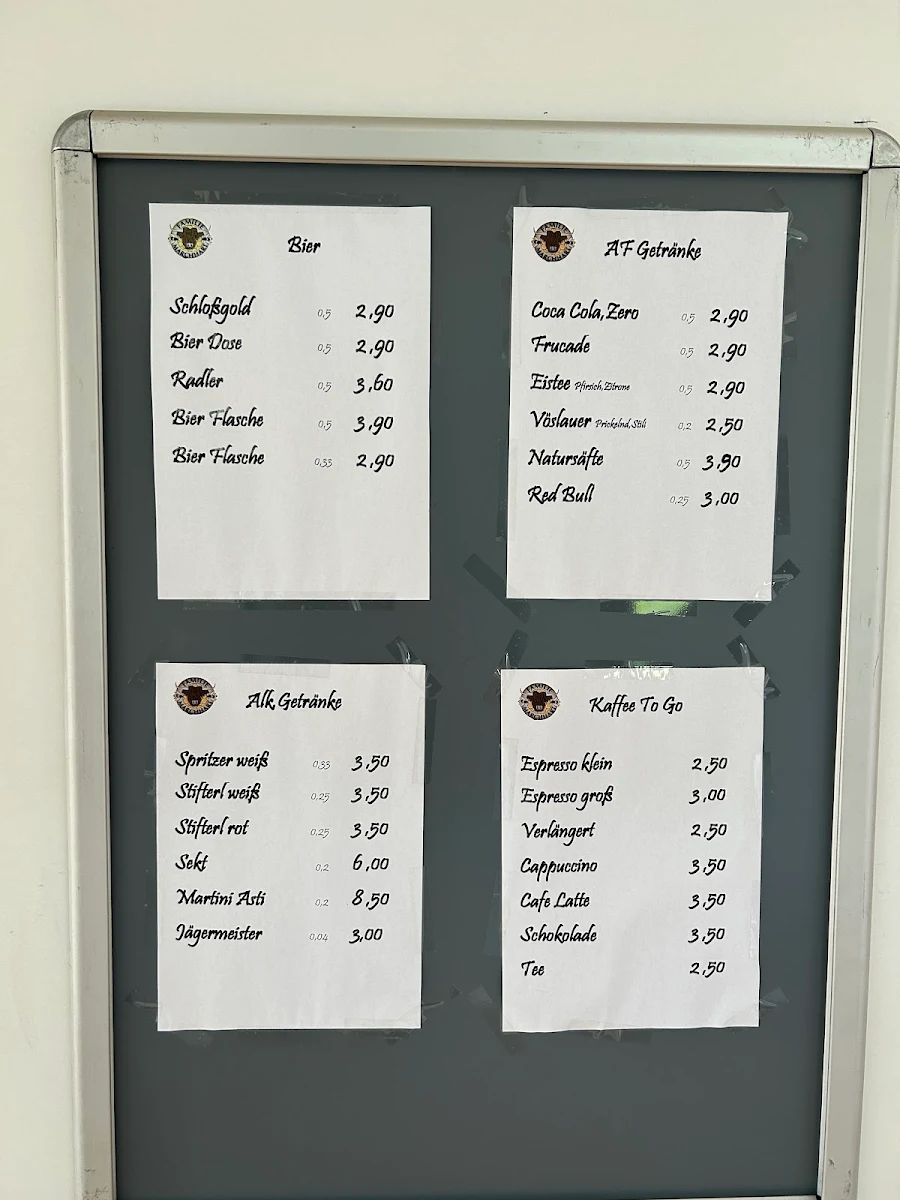 FAMILIE
MARCHHART
Bier
Schloßgold 0,5 2,90
Bier Dose 0,5 2,90
Radler 0,5 3,60
Bier Flasche 0,5 3,90
Bier Flasche 0,33 2,90
FAMILIE
MARCHHART
AF Getränke
Coca Cola,Zero 0,5 2,90
Frucade 0,5 2,90
Eistee Pfirsich,Zitrone 0,5 2,90
Vöslauer Prickelnd,Still 0,2 2,50
Natursäfte 0,5 3,90
Red Bull 0,25 3,00
FAMILIE
MARCHHART
Alk.Getränke
Spritzer weiß 0,33 3,50
Stifterl weiß 0,25 3,50
Stifterl rot 0,25 3,50
Sekt 0,2 6,00
Martini Asti 0,2 8,50
Jägermeister 0,04 3,00
FAMILIE
MARCHHART
Kaffee To Go
Espresso klein 2,50
Espresso groß 3,00
Verlängert 2,50
Cappuccino 3,50
Cafe Latte 3,50
Schokolade 3,50
Tee 2,50